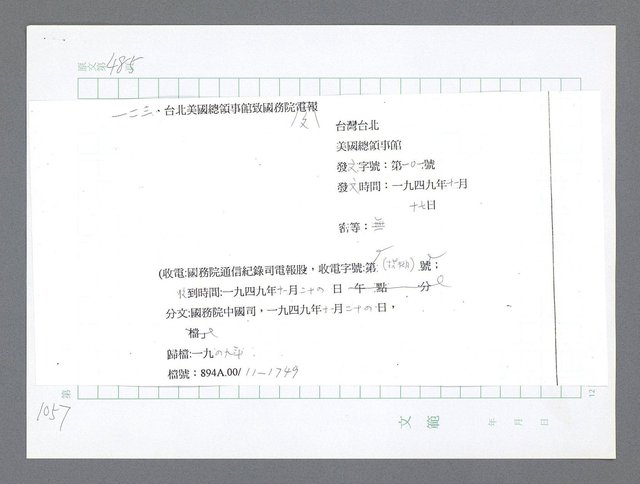 原文第485號
一二三、台北美國總領事館致國務院電報
文
台灣台北
美國總領事館
發文字號：第一〇一號
發文時間：一九四九年十一月
十七日
密等：無
(收電:國務院通信紀錄司電報股，收電字號:第 號；
收到時間:一九四九年十一月二十四日 午 點 分
分文:國務院中國司，一九四九年十一月二十四日，
檔
歸檔:一九四九年
檔號：894A.00/11-1749
第
12
1057
文範 年 月 日